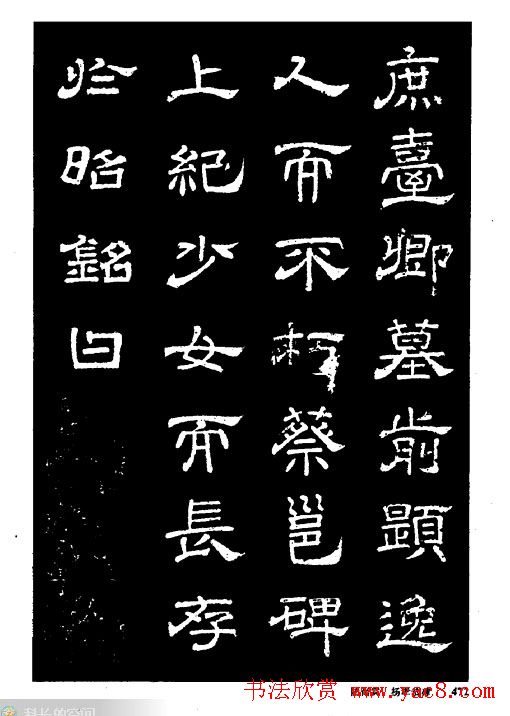 庶臺卿墓前題逸
人而不朽蔡邕碑
上紀少女而長存
於昭銘曰
书法欣赏 www.yac8.com
科长的空间